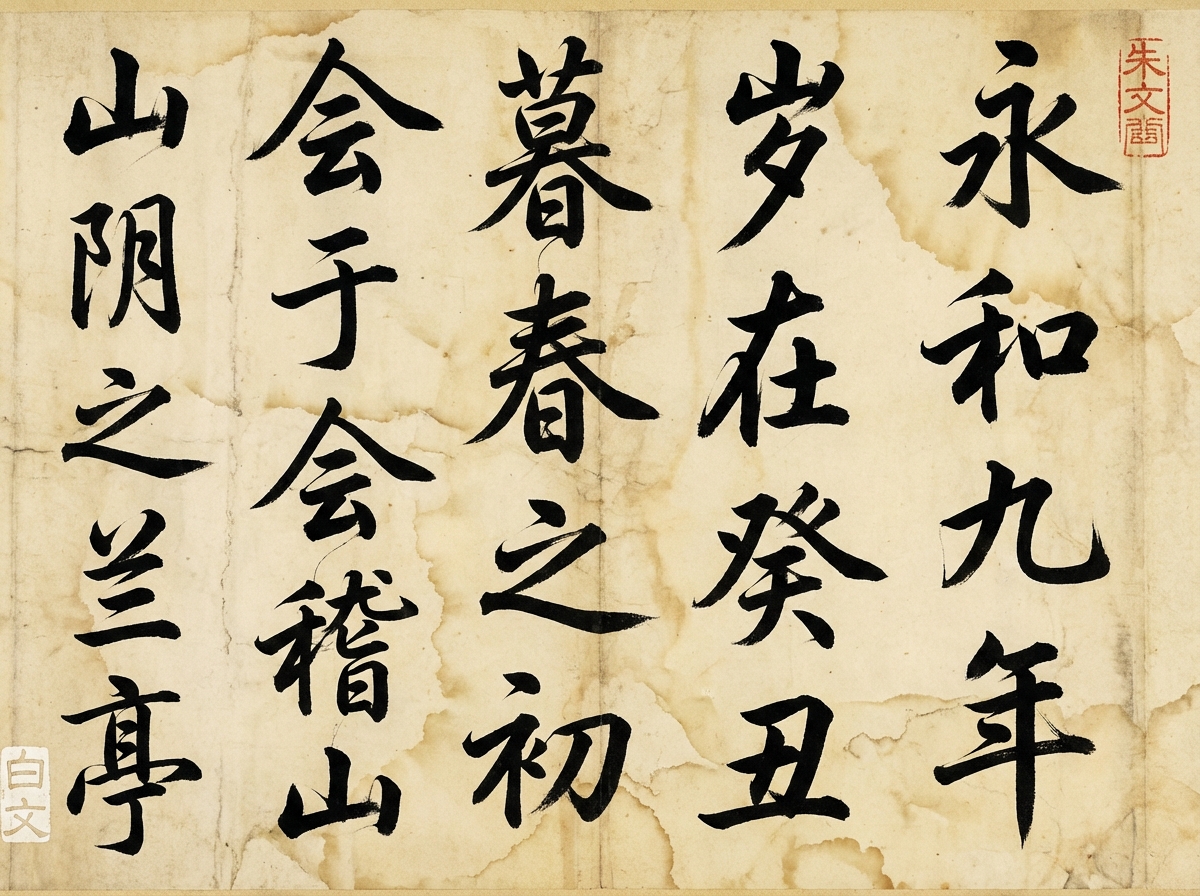 永和九年
岁在癸丑
暮春之初
会于会稽山
山阴之兰亭
朱文
白文